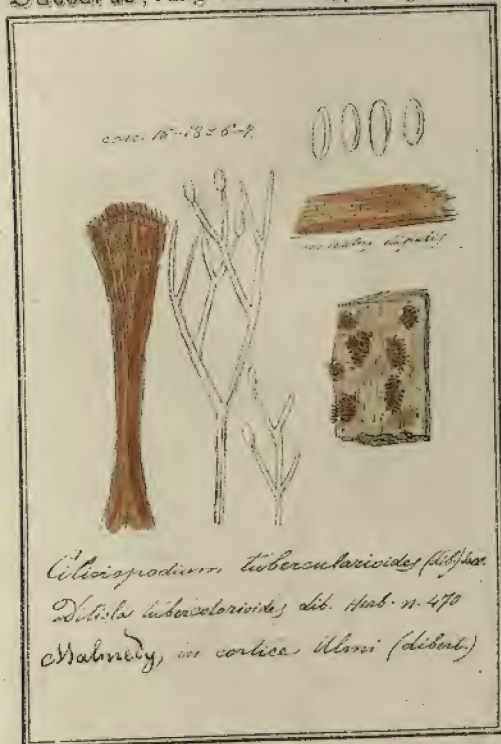 con. 15-18 = 6-7.
stipitis
Ciliciopodium tubercularioides (Lib) Sacc.
Ditiola tubercolarioides Lib. Herb. n. 470
Malmedy, in cortice Ulmi (Libert.)